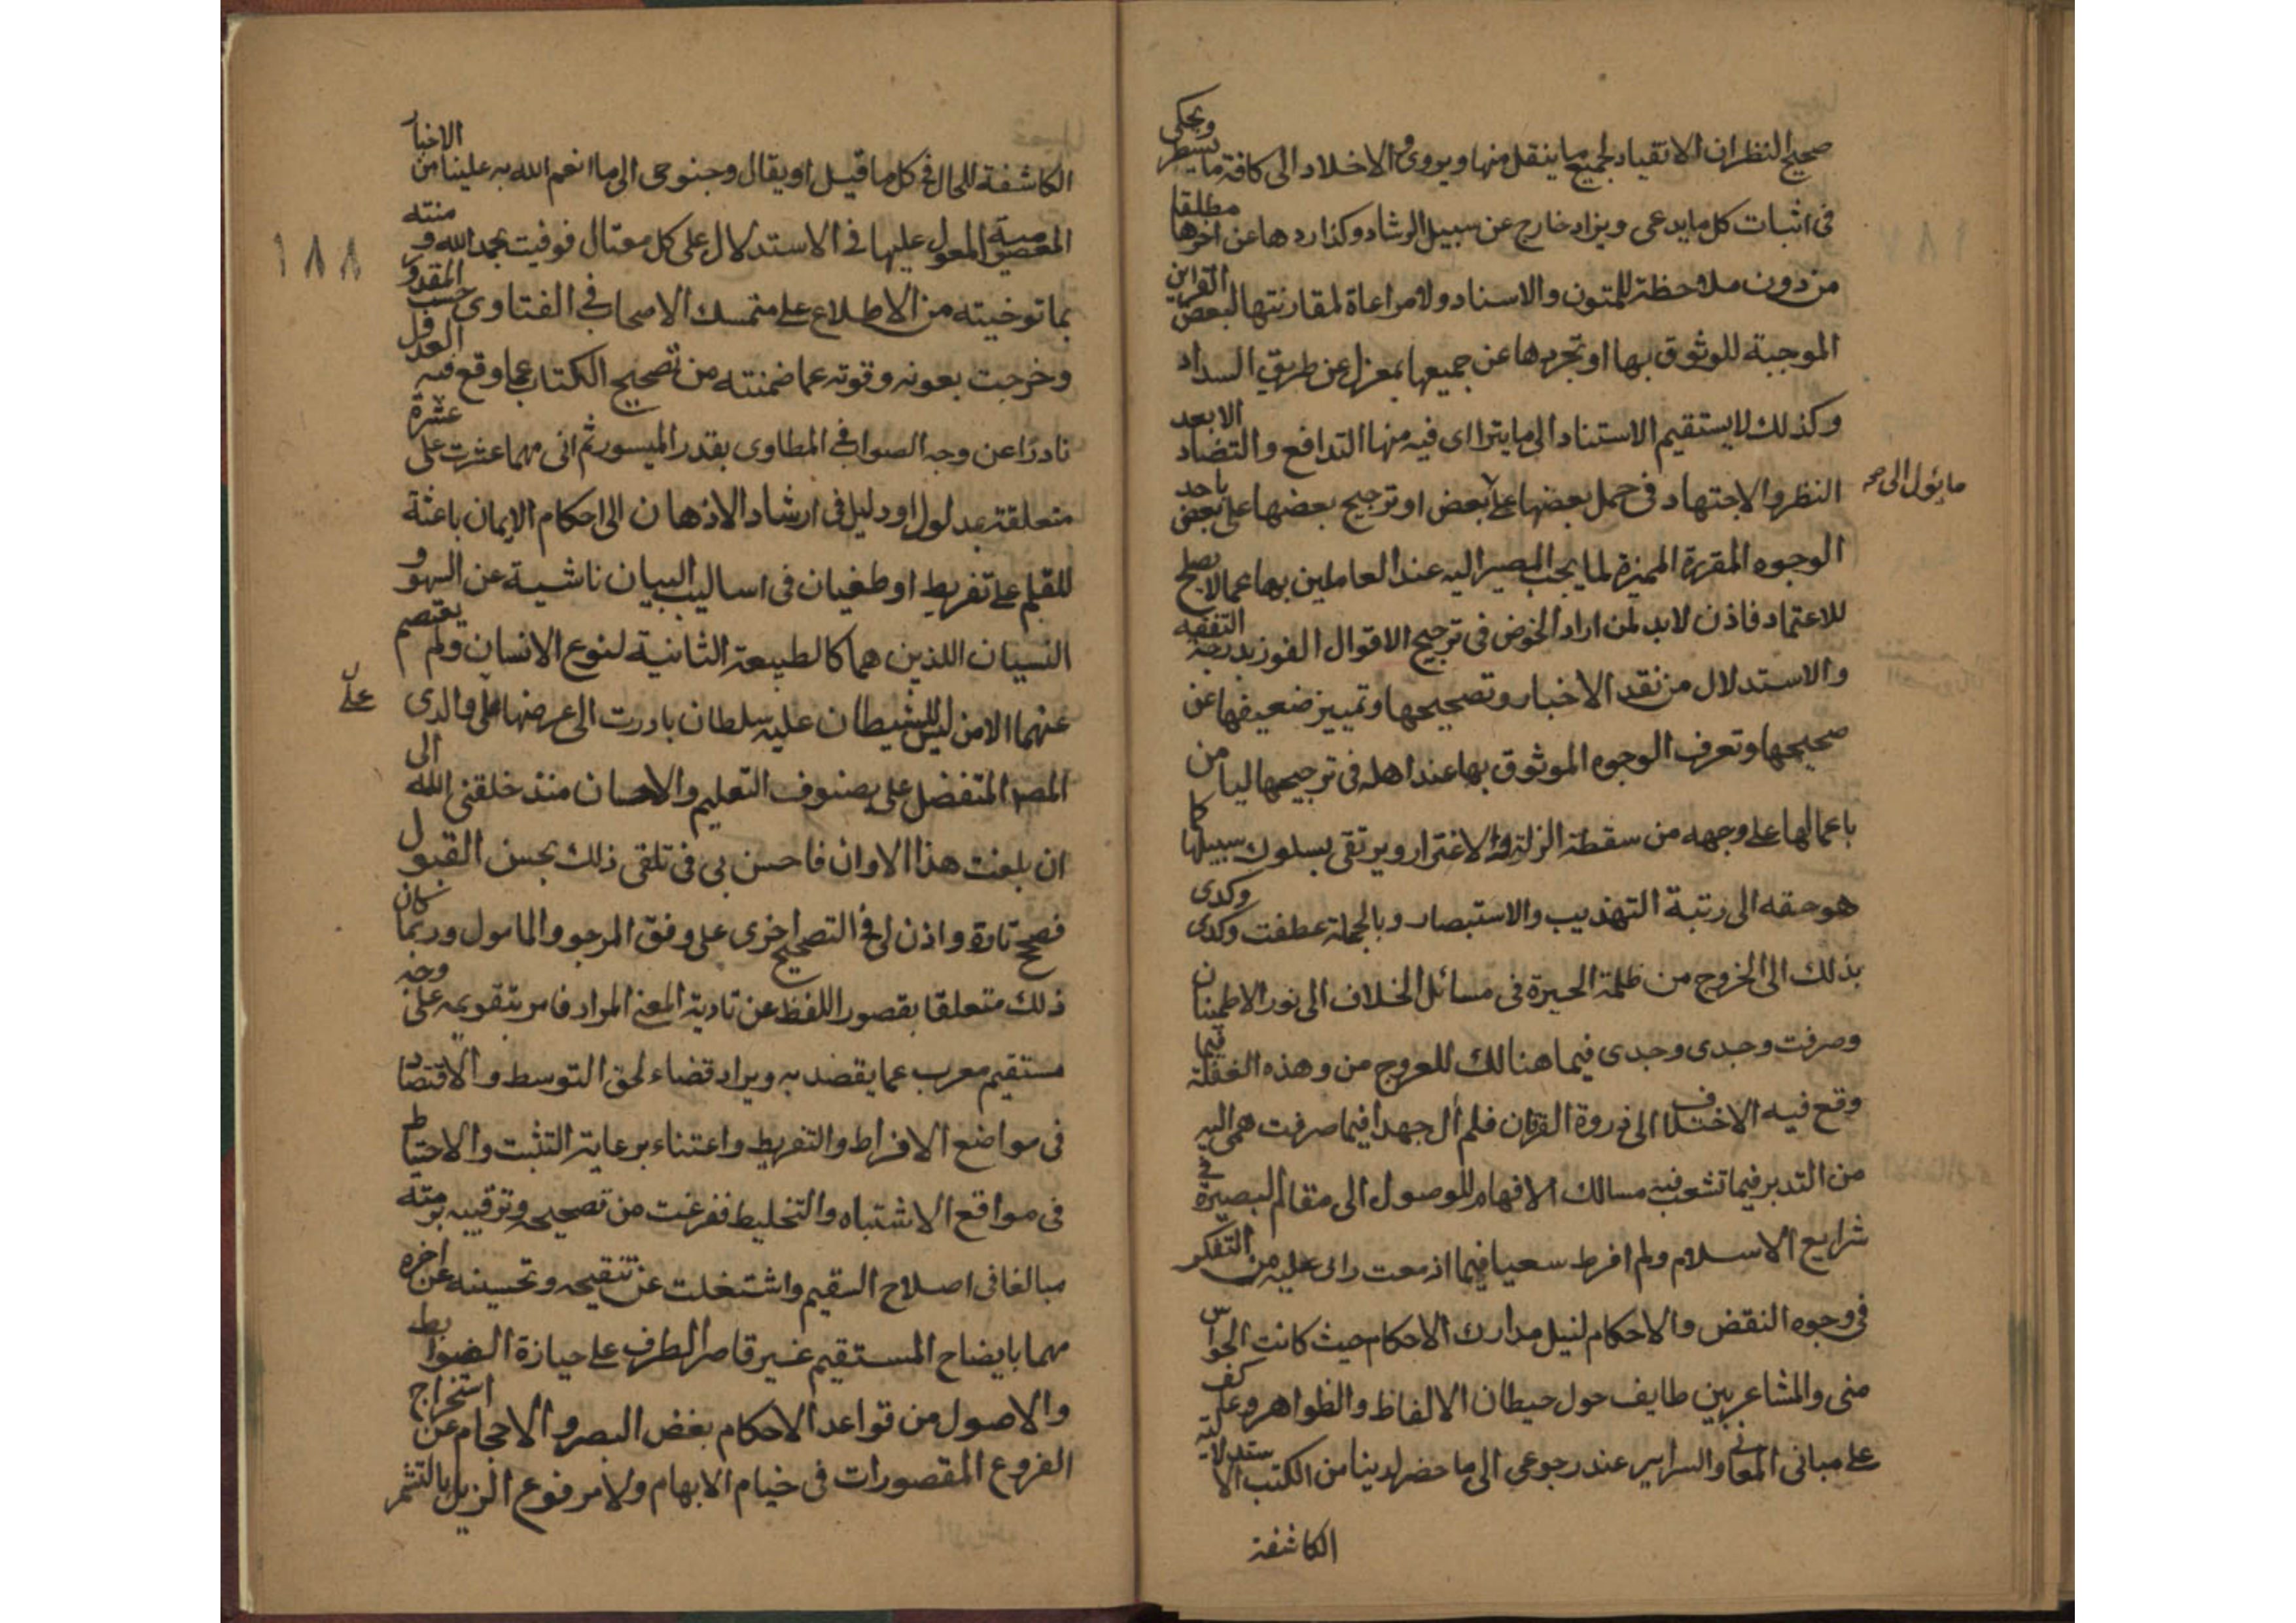 صحيح النظر ان الانقياد لجميع ما ينقل منها ويروى والاخلاد الى كافة ما يسطر ويحكى
فى اثبات كل ما يدعى ويراد خارج عن سبيل الرشاد وكذا ردها عن اخرها مطلقا
من دون ملاحظة للمتون والاسناد ولا مراعاة لمقارنتها لبعض القراين
الموجبة للوثوق بها او تجردها عن جميعها بمعزل عن طريق السداد
وكذلك لا يستقيم الاستناد الى ما يتراای فيه منها التدافع والتضاد الا بعد
النظر والاجتهاد فى حمل بعضها على بعض او ترجيح بعضها على بعض باحد
ما يؤل اليه
الوجوه المقررة المميزة لما يجب المصير اليه عند العاملين بها عما لا يصلح
للاعتماد فاذن لابد لمن اراد الخوض فى ترجيح الاقوال الفوز بدرجة التفقه
والاستدلال من نقد الاخبار وتصحيحها وتمييز ضعيفها عن
صحيحها وتعرف الوجوه الموثوق بها عند اهله فى ترجيحها ليامن
باعمالها على وجهه من سقطة الزلة والاغترار ويرتقى بسلوك سبيلها كما
هو حقه الى رتبة التهذيب والاستبصار وبالجملة عطفت وكدى وكدى
بذلك الى الخروج من ظلمة الحيرة فى مسائل الخلاف الى نور الاطمينان
وصرفت وجدى وجدى فيما هنالك للعروج من وهذه الغفلة فيما
وقع فيه الاختلاف الى ذروة القران فلم أل جهدا فيما صرفت همى اليه
من التدبر فيما تشعب فيه مسالك الافهام للوصول الى مقالم البصيرة فى
شرايع الاسلام ولم افرط سعيا فيما اذمعت رائى عليه من التفكر
فى وجوه النقض والاحكام لنيل مدارك الاحكام حيث كانت الحواس
منى والمشاعر بين طايف حول حيطان الالفاظ والظواهر وعاكف
على مبانى المعانى والسراير عند رجوعى الى ما حضر لدينا من الكتب الاستدلالية
الكاشفة
١٨٨
الكاشفة للحال فى كل ما قيل او يقال وجنوحى الى ما انعم الله به علينا من الاخبار
المعصومية المعول عليها فى الاستدلال على كل مقال فوفيت بحمد الله ومنته
بما توخيته من الاطلاع على متمسك الاصحاب فى الفتاوى حسب المقدور
وخرجت بعونه وقوته عما ضمنته من تصحيح الكتاب عما وقع فيه العدول
نادرا عن وجه الصواب فى المطاوى بقدر الميسور ثم انى مهما عثرت على عثرة
متعلقة بمدلول او دليل فى ارشاد الاذهان الى احكام الايمان باعثة
للقلم على تفريط او طغيان فى اساليب البيان ناشية عن السهو و
النسيان اللذين هما كالطبيعة الثانية لنوع الانسان ولم يعتصم
عنهما الا من ليس للشيطان عليه سلطان بادرت الى عرضها على والدى
على
المصنف المتفضل على بصنوف التعليم والاحسان منذ خلقنى الله الى
ان بلغت هذا الاوان فاحسن بى فى تلقى ذلك بحسن القبول
فصحح تارة واذن لى فى التصحيح اخرى على وفق المرجو والمامول وربما كان
ذلك متعلقا بقصور اللفظ عن تادية المعنى المراد فامر بتقويمه على وجه
مستقيم معرب عما يقصد به ويراد قضاء لحق التوسط والاقتصاد
فى مواضع الافراط والتفريط واعتناء برعاية التثبت والاحتياط
فى مواقع الاشتباه والتخليط ففرغت من تصحيحه وترقييه برمته
مبالغا فى اصلاح السقيم واشتغلت عن تنقيحه وتحسينه عن اخره
مهما بايضاح المستقيم غير قاصر الطرف على حيازة الضوابط
والاصول من قواعد الاحكام بغض البصر والاحجام عن استخراج
الفروع المقصورات فى خيام الابهام ولا مرفوع الزيل بالتشمر